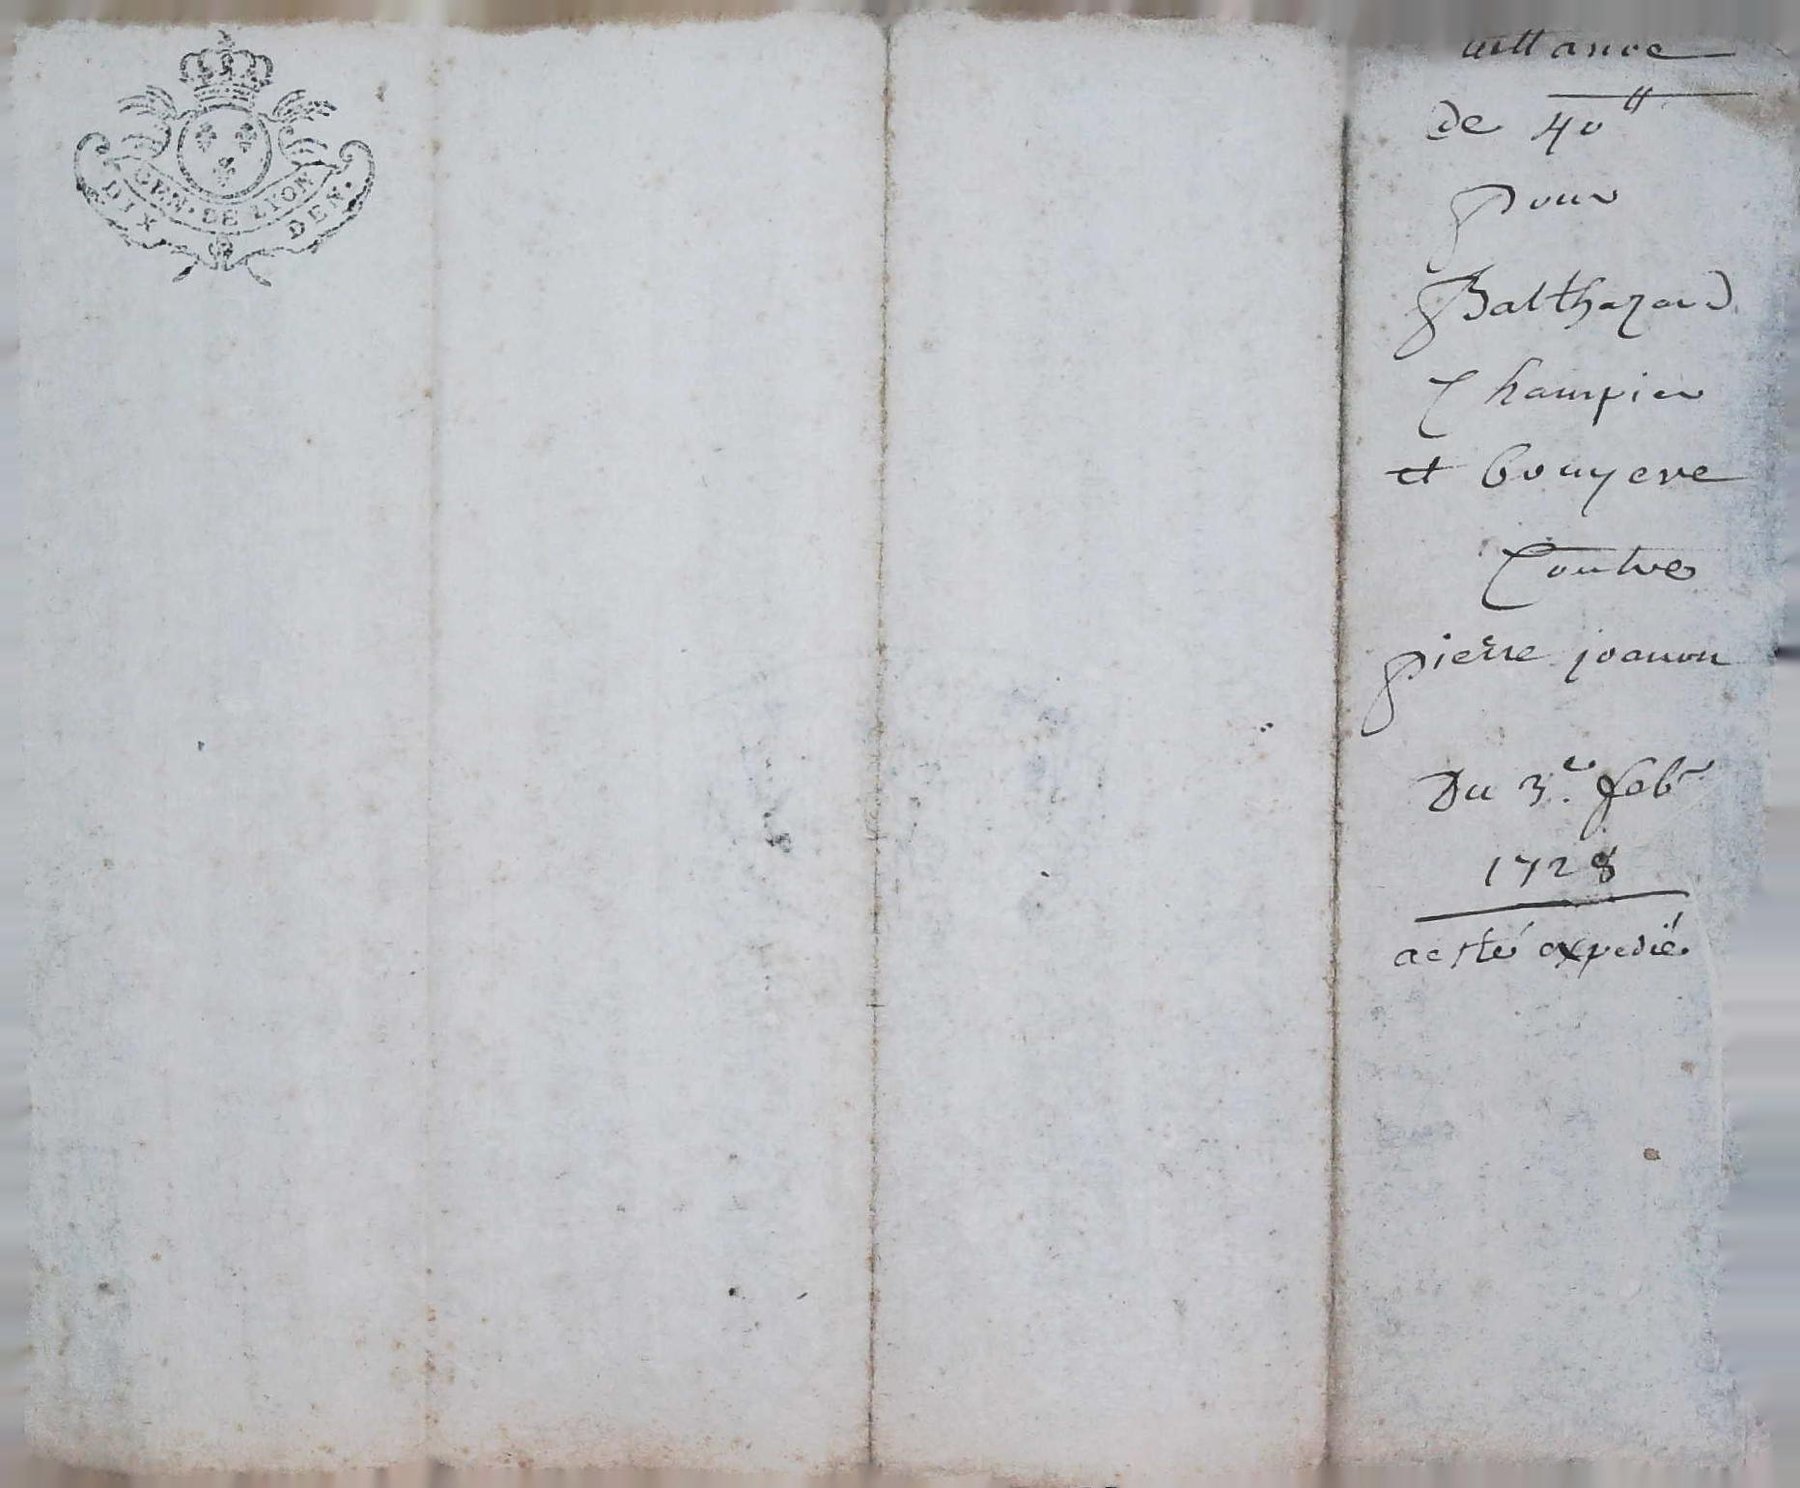 GEN. DE LION
DIX DEN.
uittance
de 40tt
pour
Balthazard
Champier
et bouyere
Contre
pierre joanon
Du 3.e feb.r
1728
a esté expedié.